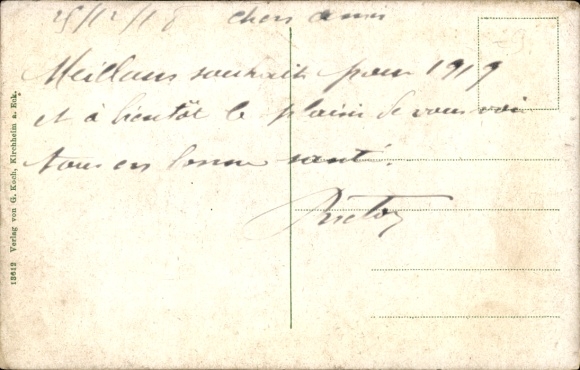 25/12/18 chers amis
Meilleurs souhaits pour 1919
et à bientôt le plaisir de vous voir
tous en bonne santé.
18612 Verlag von G. Koch, Kirchheim a. Eck.